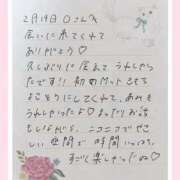 2月19日 Oさんへ
会いに来てくれて
ありがとう♡
久しぶりに会えて うれしかっ
たです!! 初めてっと とても
よろこうにしてくれて、あれも
うれしかったよ♡まったりお話
もしながらも、ニコニコで せこ
しい 空間で 時間いっぱい、
すごく楽しかったね♡